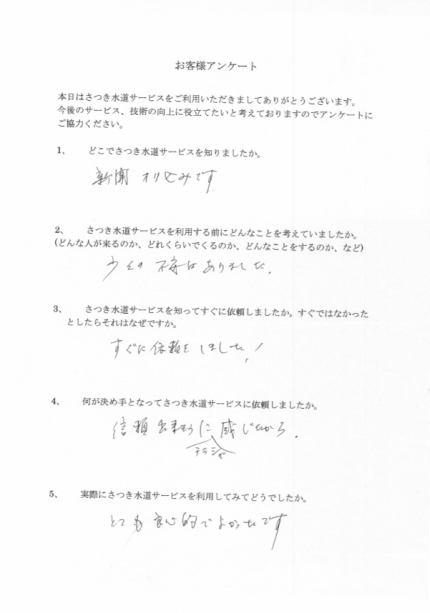 お客様アンケート
本日はさつき水道サービスをご利用いただきましてありがとうございます。
今後のサービス、技術の向上に役立てたいと考えておりますのでアンケートに
ご協力ください。
1、 どこでさつき水道サービスを知りましたか。
新聞 オリこみです
2、 さつき水道サービスを利用する前にどんなことを考えていましたか。
(どんな人が来るのか、どれくらいでくるのか、どんなことをするのか、など)
少しの 不安はありました。
3、 さつき水道サービスを知ってすぐに依頼しましたか。すぐではなかった
としたらそれはなぜですか。
すぐに依頼をしました!
4、 何が決め手となってさつき水道サービスに依頼しましたか。
信頼出来そうに感じたから。
チラシが
5、 実際にさつき水道サービスを利用してみてどうでしたか。
とても良心的でよかったです